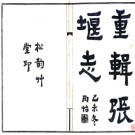 重輯張
堰志
乙未冬
松韵艸
堂印